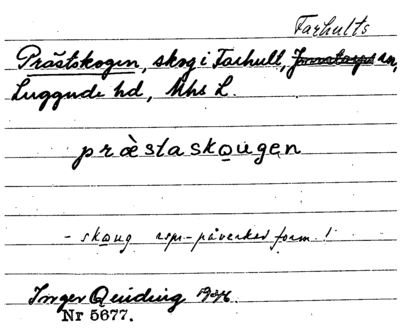 Farhults
Prästskogen, skog i Farhult, sn,
Luggude hd, Mhs L.
prὰstaskougen
- skoug rspr-påverkad form!
Inger Quiding 1934.
Nr 5677.